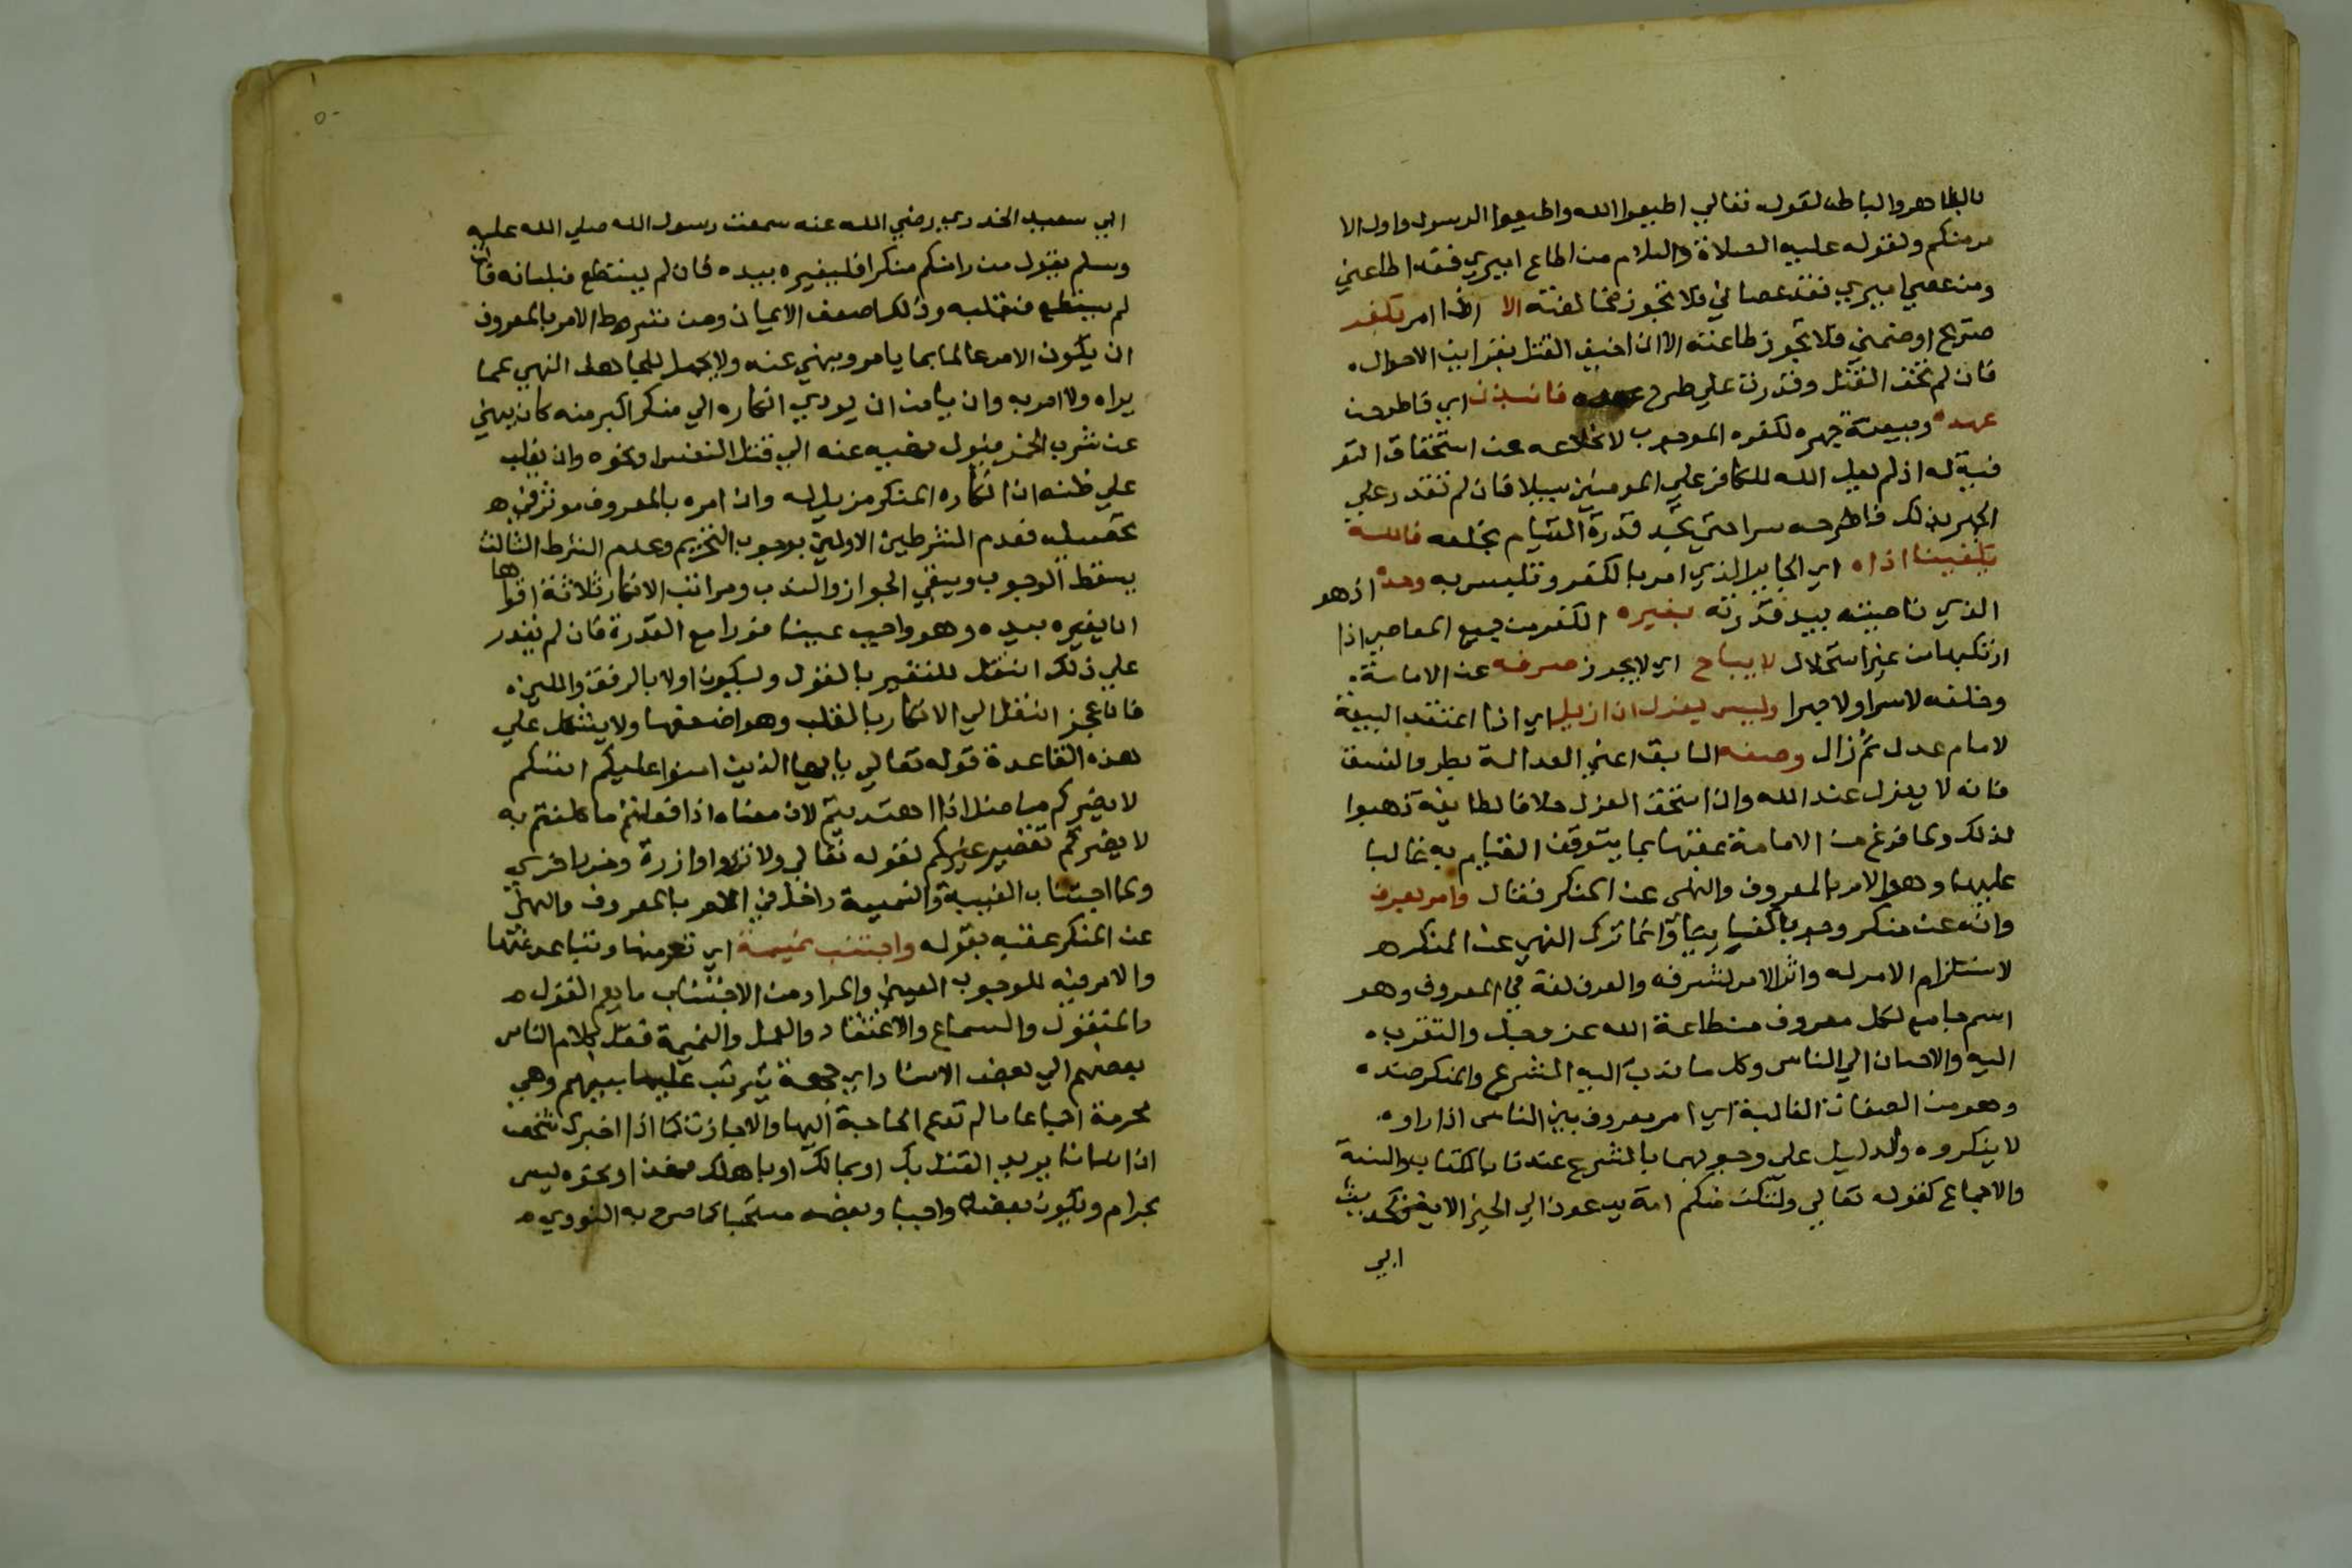 بالظاهر والباطن لقوله تعالي اطيعوا الله واطيعوا الرسول واولي الا
مر منكم ولقوله عليه الصلاة والسلام من اطاع اميري فقد اطاعني
ومن عصي اميري فقد عصاني فلا تجوز مخالفته الا اذا امر بكفر
صريح او ضمني فلا تجوز طاعته الا ان اخيف القتل بقراين الاحوال
فان لم تخف القتل وقدرت علي طرح عهده فانبذن اي فاطرحن
عهده وبيعته جهره لكفره الموجب لانخلاعه عن استحقاق التو
فية له اذ لم يجعل الله للكافر علي المومنين سبيلا فان لم تقدر علي
الجهر بذلك فاطرحه سرا حتي تجد قدرة القيام بخلعه فالله
يكفينا اذاه اي الجاير الذي امر بالكفر وتلبس به وحده اذ هو
الذي ناصيته بيد قدرته بغير الكفر من جميع المعاصي اذا
ارتكبها من غير استحلال لا يباح اي لا يجوز صرفه عن الامامة
وخلعه لا سرا ولا جهرا وليس يعزل ان ازيل اي اذا انعقدت البيعة
لامام عدل ثم زال وصفه السابق اعني العدالة بطرو الفسق
فانه لا يعزل عند الله وان استحق العزل خلافا لطايفة ذهبوا
لذلك ولما فرغ من الامامة عقبها بما يتوقف القيام به غالبا
عليها وهو الامر بالمعروف والنهي عن المنكر فقال وامر بعرف
وانه عن منكر وجوبا كفاييا وانما ترك النهي عن المنكر
لاستلزام الامر له واثر الامر لشرفه والعرف لغة في المعروف وهو
اسم جامع لكل معروف من طاعة الله عز وجل والتقرب
اليه والاحسان الي الناس وكل ما ندب اليه الشرع والمنكر ضده
وهو من الصفات الغالبة اي امر معروف بين الناس اذا راوه
لا ينكروه والدليل علي وجوبهما بالشرع عندنا بالكتاب والسنة
والاجماع كقوله تعالي ولتكن منكم امة يدعون الي الخير الاية وكحديث
ابي
ابي سعيد الخدري رضي الله عنه سمعت رسول الله صلي الله عليه
وسلم يقول من راي منكم منكرا فليغيره بيده فان لم يستطع فبلسانه فان
لم يستطع فبقلبه وذلك اضعف الايمان ومن شروط الامر بالمعروف
ان يكون الامر عالما بما يامر وينهي عنه ولا يحل للجاهل النهي عما
يراه ولا امر به وان يامن ان يودي انكاره الي منكر اكبر منه كان ينهي
عن شرب الخمر فيول نهيه عنه الي قتل النفس ونحوه وان يغلب
علي ظنه ان انكاره المنكر مزيل له وان امره بالمعروف موثر في
تحصيله فعدم الشرطين الاولين يوجب التحريم وعدم الشرط الثالث
يسقط الوجوب ويبقي الجواز والندب ومراتب الانكار ثلاثة اقواها
ان يغيره بيده وهو واجب عينا فورا مع القدرة فان لم يقدر
علي ذلك انتقل للتغيير بالقول وليكون اولا بالرفق واللين
فان عجز انتقل الي الانكار بالقلب وهو اضعفها ولا يشكل علي
هذه القاعدة قوله تعالي يا ايها الذين امنوا عليكم انفسكم
لا يضركم من ضل اذا اهتديتم لان معناه اذا فعلتم ما كلفتم به
لا يضركم تقصير غيركم لقوله تعالي ولا تزر وازرة وزر اخري
ولما اجتناب الغيبة والنميمة داخل في الامر بالمعروف والنهي
عن المنكر عقبه بقوله واجتنب نميمة اي تعر منها وتباعد عنها
والامر فيه للوجوب العيني والمراد من الاجتناب ما يعم القول
والمنقول والسماع والاعتقاد والعمل والنميمة نقل كلام الناس
بعضهم الي بعض الافساد اي جهة يترتب عليها بينهم وهي
محرمة اجماعا ما لم تدع الحاجة اليها والا جازت كما اذا اخبرك شخص
ان انسانا يريد القتل بك او بمالك او باهلك فهذا ونحوه ليس
بحرام ويكون بعضه واجبا وبعضه مستحبا كما صرح به النووي